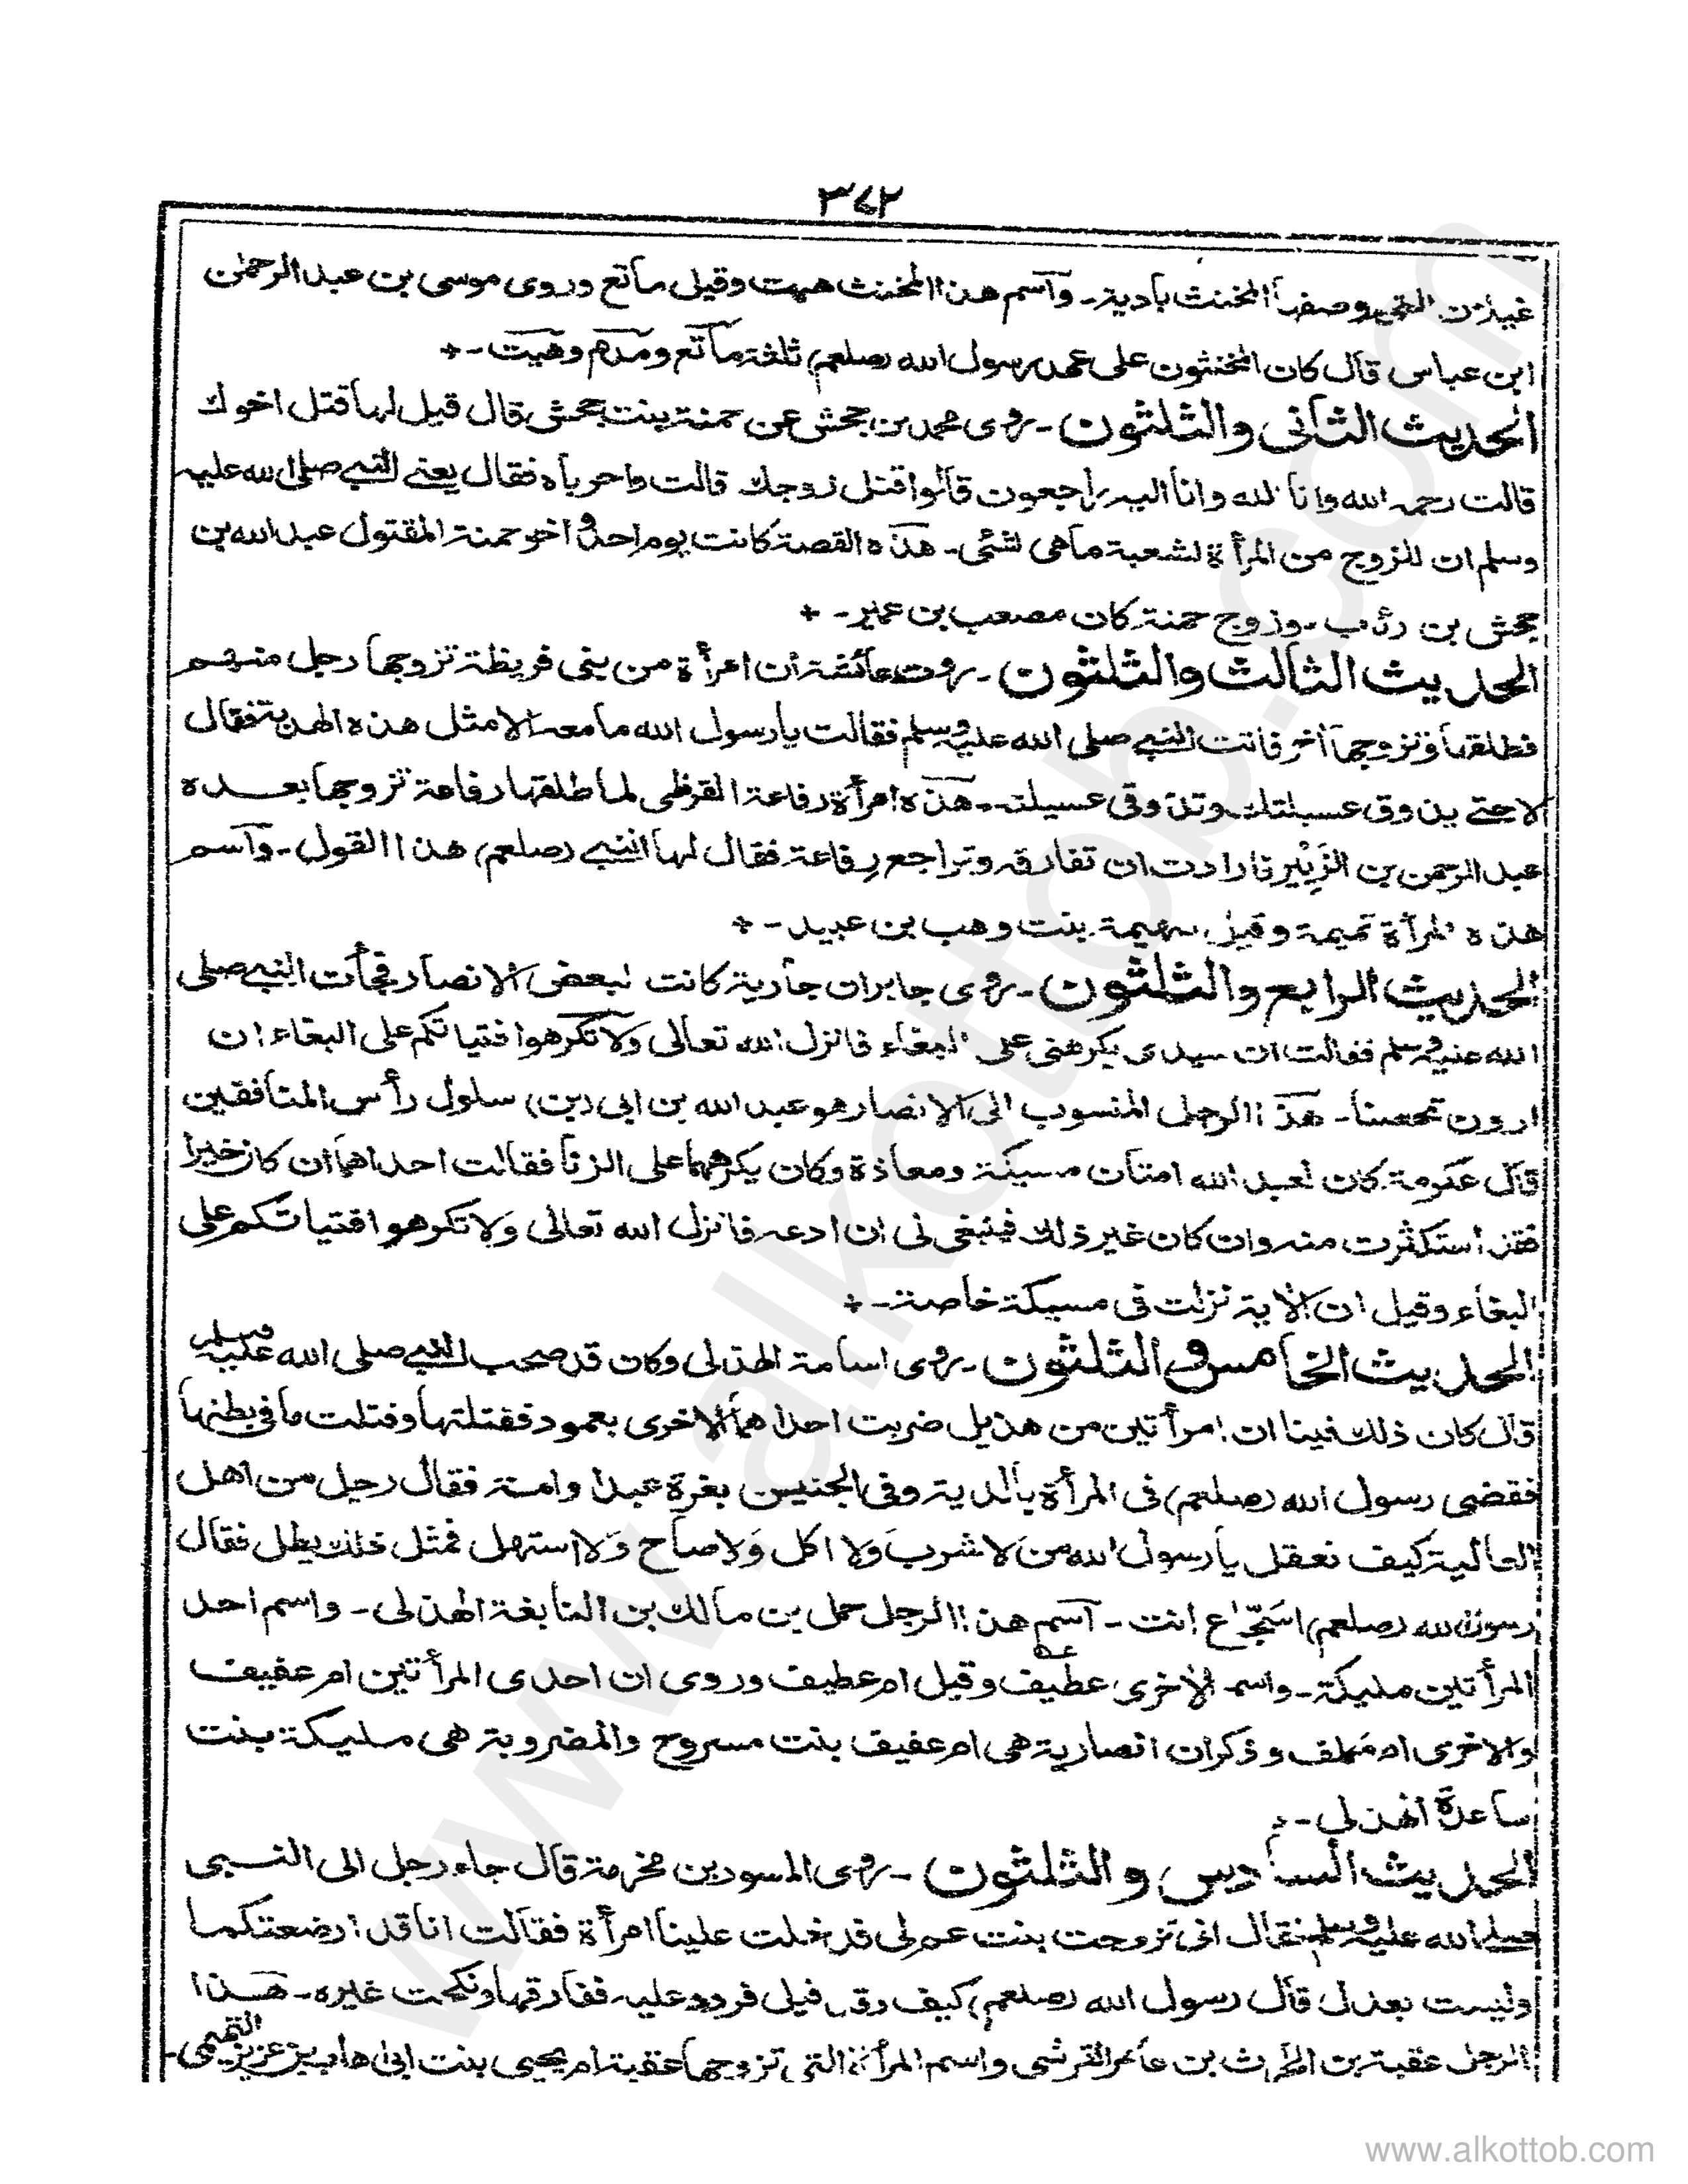 ٣٧٢
غيلان الثقفي وصفها المخنث بادية۔ وآسم هذا المخنث هيت وقيل ماتع وروى موسى بن عبد الرحمٰن
ابن عباس قال كان المخنثون على عهد رسول الله (صلعم) ثلثة ماتع ومدهم وهيت۔ +
الحديث الثاني والثلثون۔ روى محمد بن جحش عن حمنة بنت جحش قال قيل لها قتل اخوك
قالت رحمه الله وانا لله وانا اليه راجعون قالوا قتل زوجك قالت واحرباه فقال يعني النبي صلى الله عليه
وسلم ان للزوج من المرأة لشعبة ماهي لشئى۔ هذه القصة كانت يوم احد واخو حمنة المقتول عبد الله بن
جحش بن رئاب۔ وزوج حمنة كان مصعب بن عمير۔ +
الحديث الثالث والثلثون۔ روت عائشة ان امرأة من بنى قريظة تزوجها رجل منهم
فطلقها وتزوجها آخر فاتت النبي صلى الله عليه وسلم فقالت يا رسول الله ما معه الا مثل هذه الهدبة فقال
لا حتى يذوق عسيلتك وتذوقى عسيلته۔ هذه امرأة رفاعة القرظى لما طلقها رفاعة تزوجها بعده
عبد الرحمن بن الزَّبِير فارادت ان تفارقه وتراجع رفاعة فقال لها النبي (صلعم) هذا القول۔ وآسم
هذه المرأة تميمة وقيل سهيمة بنت وهب بن عبيد۔ +
الحديث الرابع والثلثون۔ روى جابر ان جارية كانت لبعض الانصار فجأت النبي صلى
الله عليه وسلم فقالت ان سيدى يكرهنى على البغاء فانزل الله تعالى ولا تكرهوا فتياتكم على البغاء ان
اردن تحصنا۔ هذا الرجل المنسوب الى الانصار هو عبد الله بن ابى (بن) سلول رأس المنافقين
قال عكرمة كان لعبد الله امتان مسيكة ومعاذة وكان يكرههما على الزنا فقالت احداهما ان كان خيرا
فقد استكثرت منه وان كان غير ذلك فينبغى لى ان ادعه فانزل الله تعالى ولا تكرهوا فتياتكم على
البغاء وقيل ان الاية نزلت فى مسيكة خاصة۔ +
الحديث الخامس والثلثون۔ روى اسامة الهذلى وكان قد صحب النبي صلى الله عليه وسلم
قال كان ذلك فينا ان امرأتين من هذيل ضربت احداهما الاخرى بعمود فقتلتها وقتلت ما فى بطنها
فقضى رسول الله (صلعم) فى المرأة بالدية وفى الجنين بغرة عبد او امة فقال رجل من اهل
العالية كيف نعقل يا رسول الله من لا شرب ولا اكل ولا صاح ولا استهل فمثل ذلك يطل فقال
رسول الله (صلعم) اسَجّاع انت۔ آسم هذا الرجل حمل بن مالك بن النابغة الهذلى۔ واسم احد
المرأتين مليكة۔ واسم الاخرى عطيف وقيل ام عطيف وروى ان احدى المرأتين ام عفيف
والاخرى ام مكلف وذكر ان انصارية هى ام عفيف بنت مسروح والمضروبة هى مليكة بنت
ساعدة الهذلى۔
الحديث السادس والثلثون۔ روى المسور بن مخرمة قال جاء رجل الى النبى
صلى الله عليه وسلم فقال انى تزوجت بنت عم لى قد خلت علينا امرأة فقالت انا قد ارضعتكما
وليست بعدل قال رسول الله (صلعم) كيف وقد قيل فردد عليه ففارقها ونكحت غيره۔ هذا
الرجل عقبة بن الحٰرث بن عامر القرشى واسم المرأة التى تزوجها عقبة ام يحيى بنت ابى اهاب بن عزيز التميمى۔
www.alkottob.com
www.alkottob.com